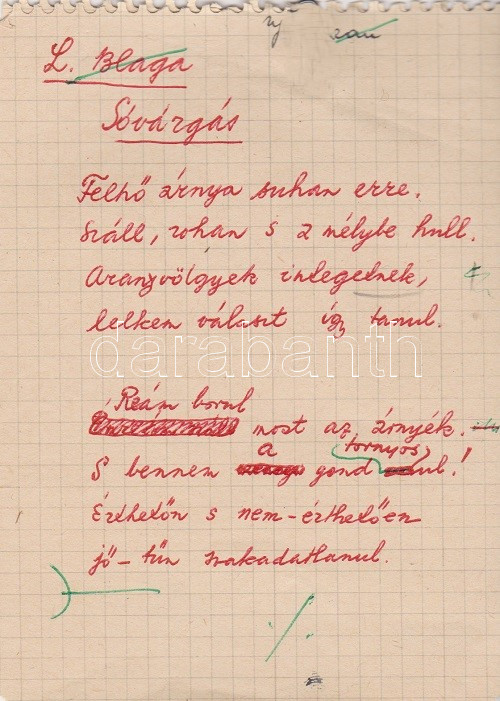 L. Blaga
Sóvárgás
Felhő árnya suhan erre.
Száll, rohan s a mélybe hull.
Aranyvölgyek integetnek,
lelkem választ így tanul.
Reám borul most az árnyék.
S bennem a gond tornyosul!
Érthetőn s nem-érthetően
jő-tűn szakadatlanul.
darabanth